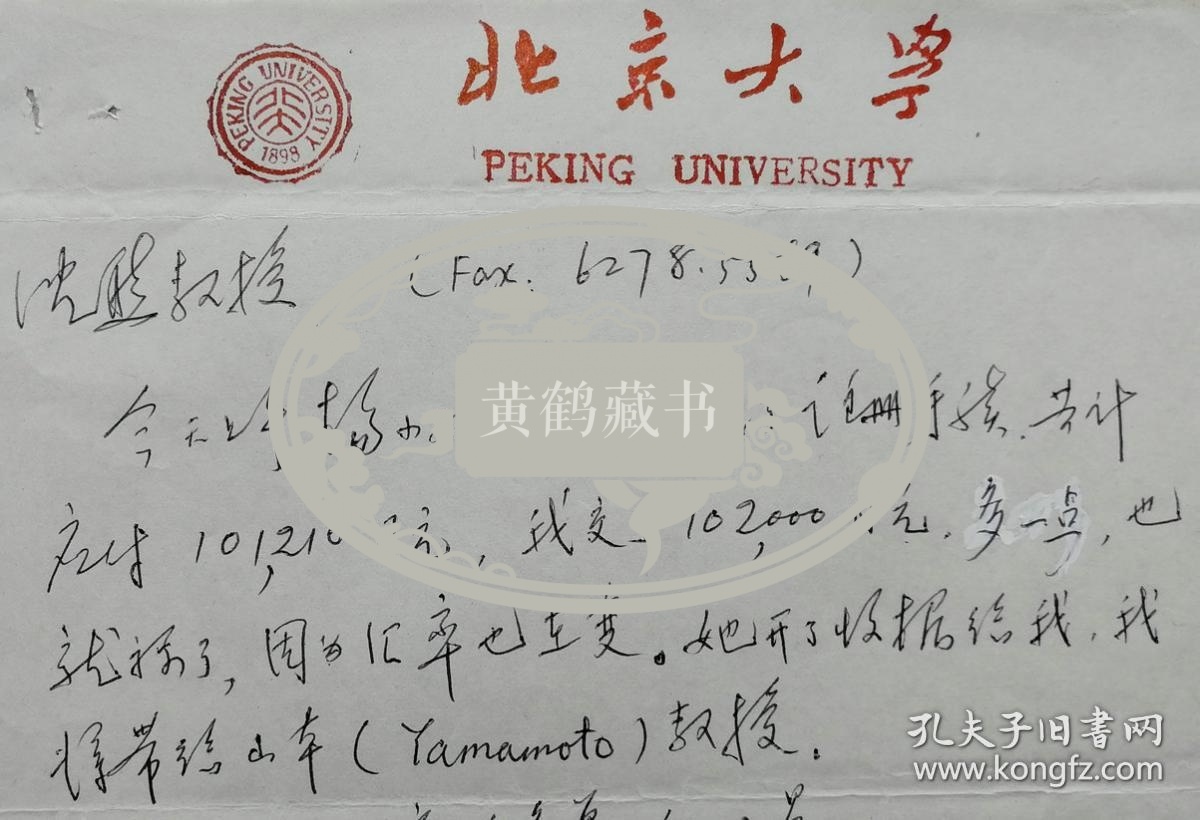 北京大学
PEKING UNIVERSITY
PEKING UNIVERSITY
1898
沈熊教授 (Fax. 6278.53
今天上午杨小 注册手续.共计
应付 101,210 我交 102,000 元.多一点,也
就算了,因为汇率也在变。她开了收据给我,我
将带给山本(Yamamoto)教授.
黄鹤藏书
孔夫子旧书网
www.kongfz.com